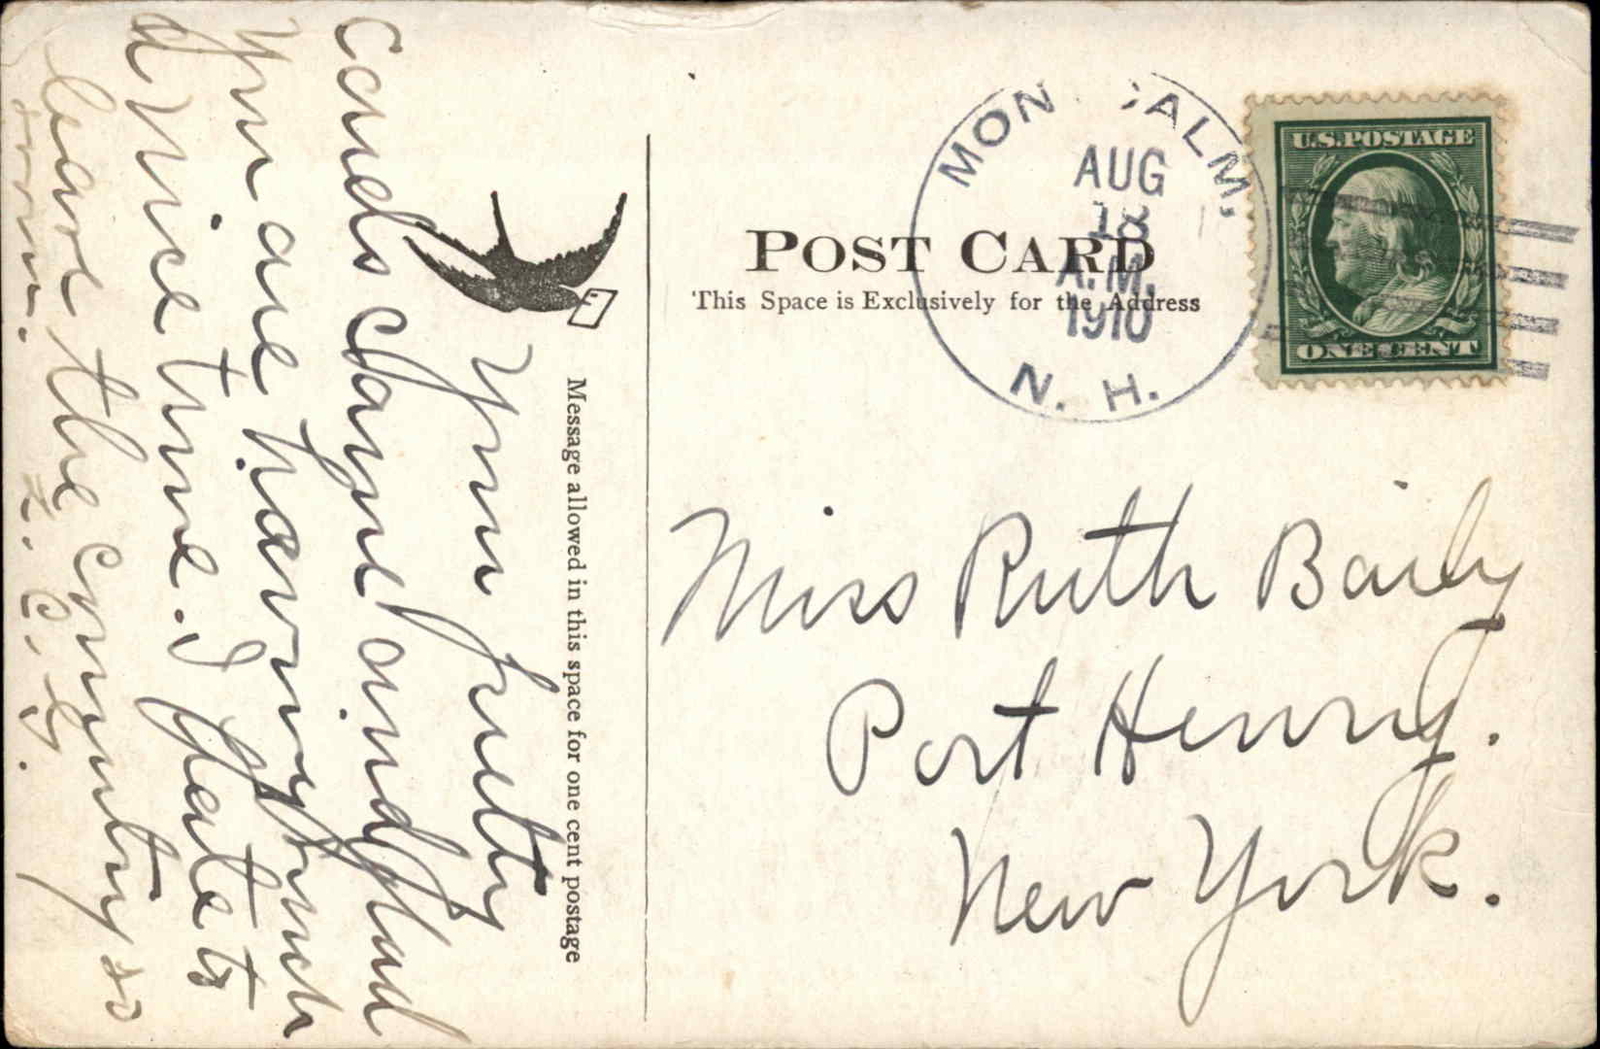 Your pretty
cards came and glad
you are having such
a nice time. I hate to
leave the country so
soon.
E. C. B.
Message allowed in this space for one cent postage
MON CALM,
AUG
13
A.M.
1910
N. H.
U.S. POSTAGE
ONE CENT
POST CARD
This Space is Exclusively for the Address
Miss Ruth Baily
Port Henry.
New York.